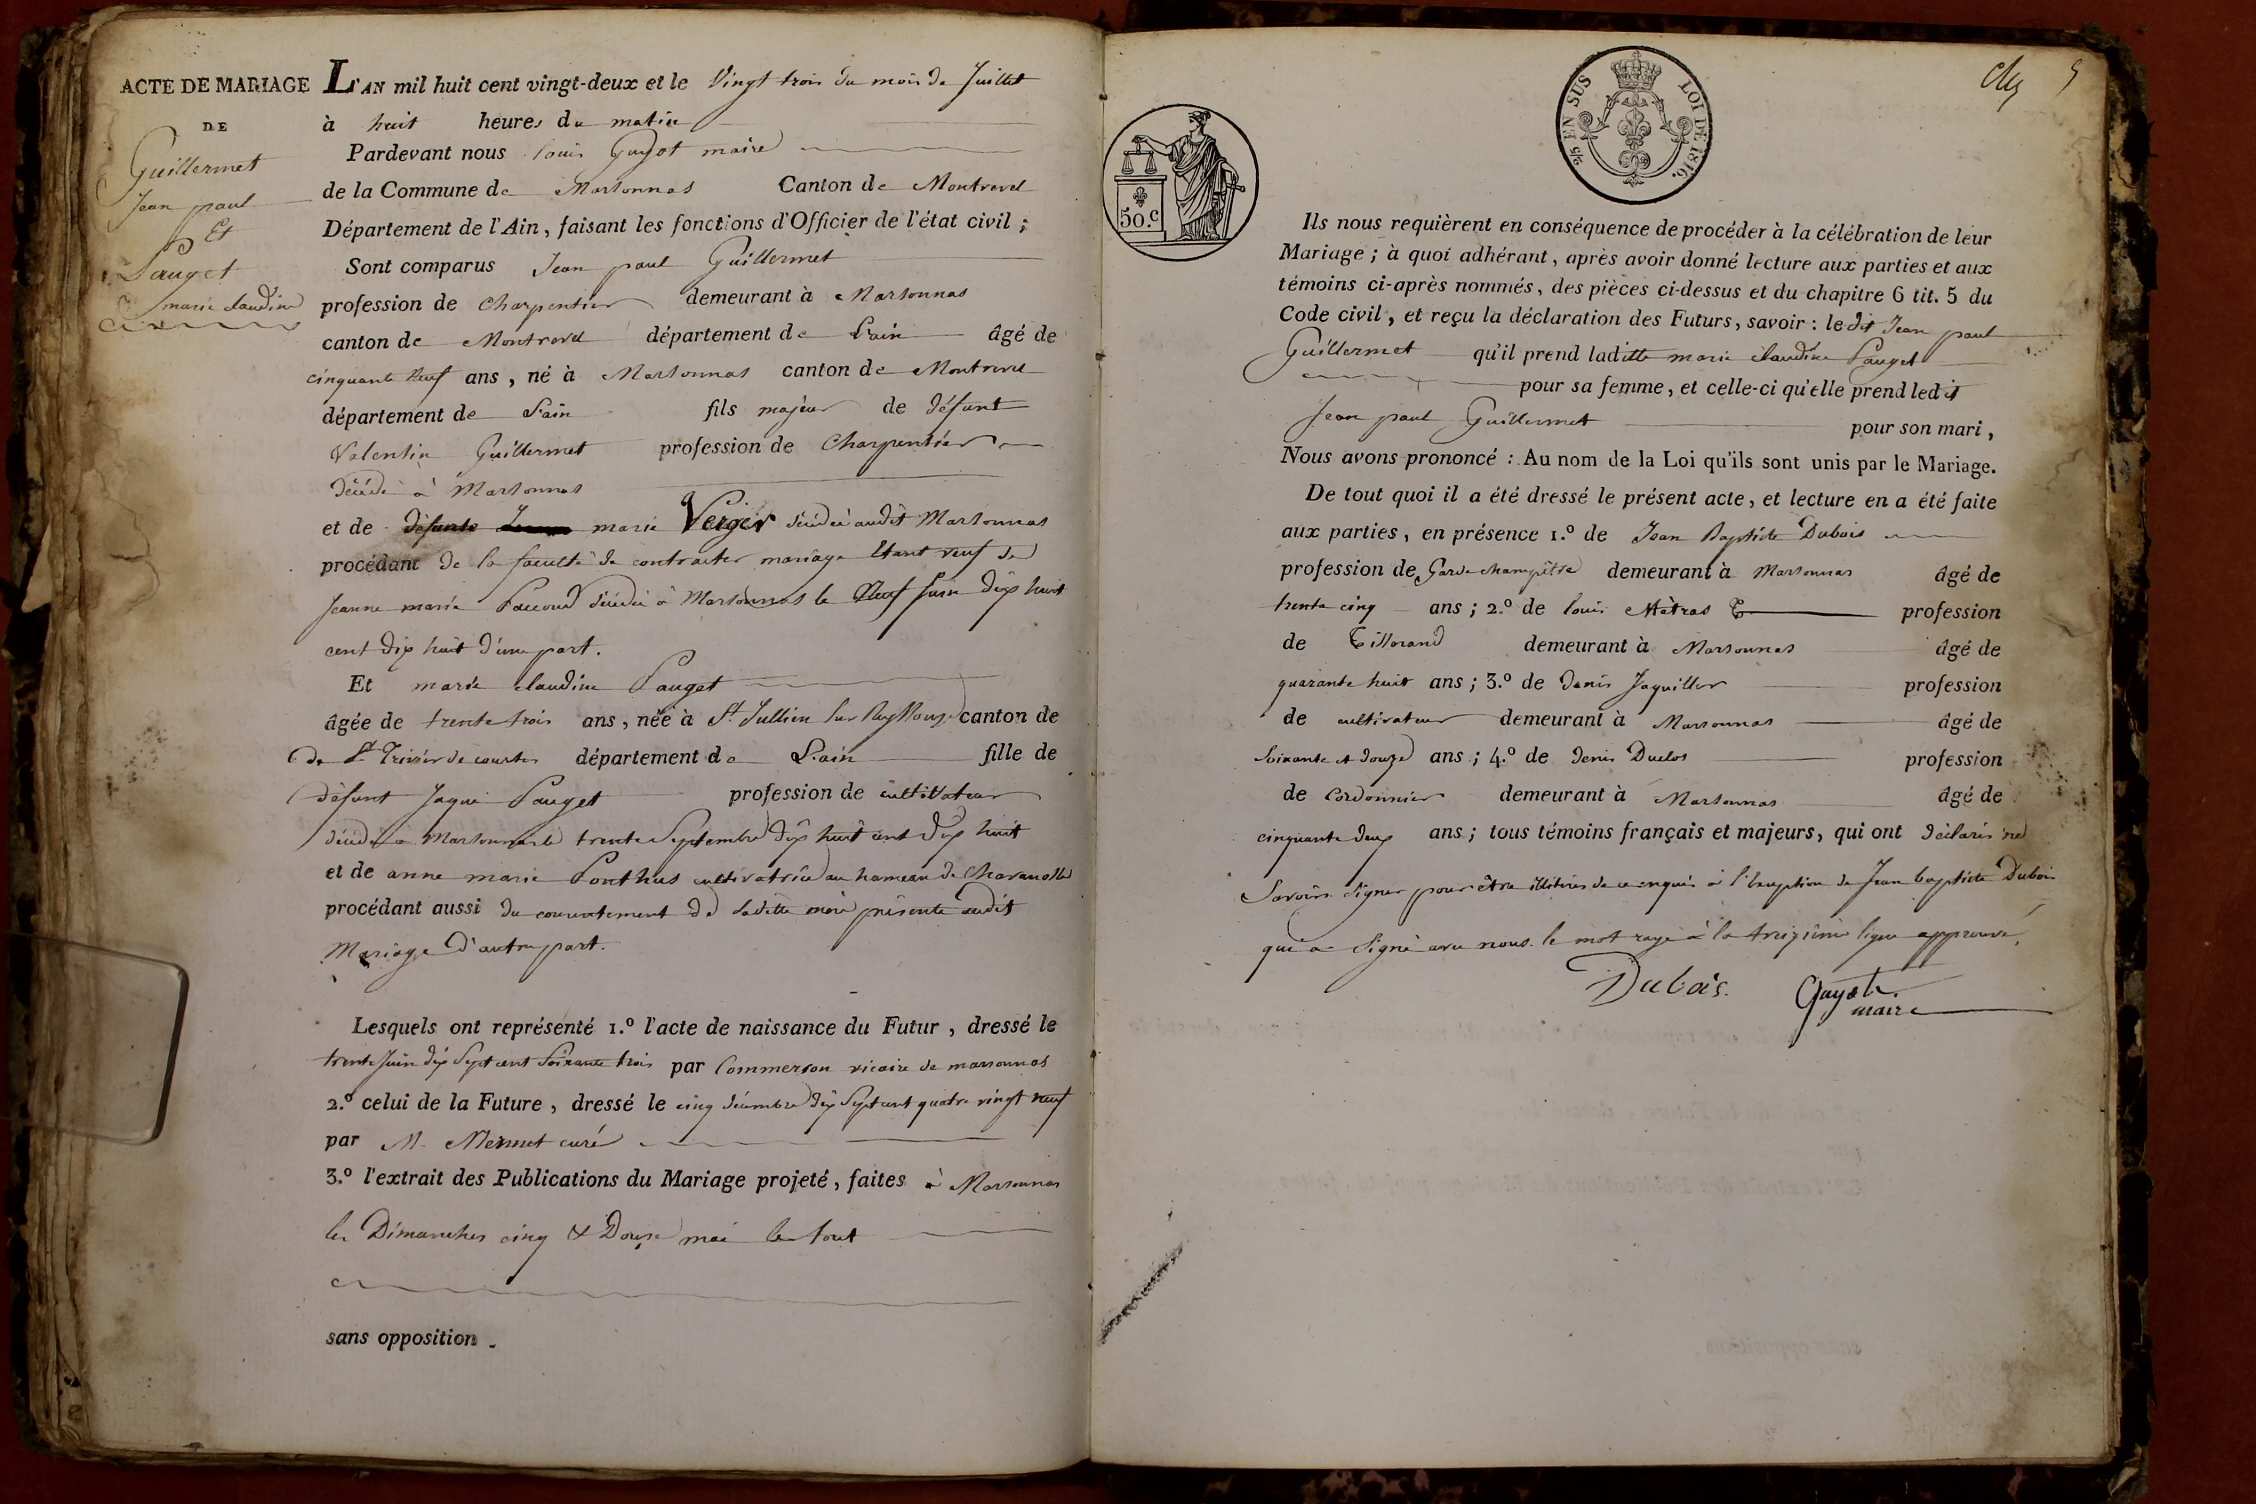 ACTE DE MARIAGE
DE
Guillermet
Jean paul
Et
Pauget
marie claudine
L'AN mil huit cent vingt-deux et le Vingt trois du mois de Juillet
à huit heures du matin
Pardevant nous Louis Guyot maire
de la Commune de Marsonnas Canton de Montrevel
Département de l'Ain, faisant les fonctions d'Officier de l'état civil ;
Sont comparus Jean paul Guillermet
profession de Charpentier demeurant à Marsonnas
canton de Montrevel département de L'ain âgé de
cinquante Neuf ans, né à Marsonnas canton de Montrevel
département de L'ain fils majeur de défunt
Valentin Guillermet profession de Charpentier
décédé à Marsonnas
et de défunte marie Verger décédée audit Marsonnas
procédant de la faculté de contracter mariage Etant veuf de
Jeanne marie Paccoud décédée à Marsonnas le Neuf Juin dix huit
cent dix huit d'une part.
Et marie claudine Pauget
âgée de trente trois ans, née à St. Jullien sur Reyssouze canton de
de St Trivier de courtes département de L'ain fille de
défunt Jaque Pauget profession de cultivateur
décédé à Marsonnas le trente Septembre dix huit cent dix huit
et de anne marie Ponthus cultivatrice au hameau de Charanolle
procédant aussi du consentement de Ladite mère présente audit
Mariage d'autre part.
Lesquels ont représenté 1.º l'acte de naissance du Futur, dressé le
trente Juin dix Sept cent Soixante trois par Commerson vicaire de marsonnas
2.º celui de la Future, dressé le cinq décembre dix Sept cent quatre vingt neuf
par M. Mermet curé
3.º l'extrait des Publications du Mariage projeté, faites à Marsonnas
les Dimanches cinq & Douze mai le tout
sans opposition.
5
2/5 EN SUS LOI DE 1816.
50.c
Ils nous requièrent en conséquence de procéder à la célébration de leur
Mariage ; à quoi adhérant, après avoir donné lecture aux parties et aux
témoins ci-après nommés, des pièces ci-dessus et du chapitre 6 tit. 5 du
Code civil, et reçu la déclaration des Futurs, savoir : le dit Jean paul
Guillermet qu'il prend laditte marie claudine Pauget
pour sa femme, et celle-ci qu'elle prend ledit
Jean paul Guillermet pour son mari,
Nous avons prononcé : Au nom de la Loi qu'ils sont unis par le Mariage.
De tout quoi il a été dressé le présent acte, et lecture en a été faite
aux parties, en présence 1.º de Jean Baptiste Dubois
profession de Garde champêtre demeurant à Marsonnas âgé de
trente cinq ans ; 2.º de Louis Mètras profession
de Tisserand demeurant à Marsonnas âgé de
quarante huit ans ; 3.º de denis Jaquiller profession
de cultivateur demeurant à Marsonnas âgé de
Soixante et douze ans ; 4.º de denis Duclos profession
de Cordonnier demeurant à Marsonnas âgé de
cinquante deux ans ; tous témoins français et majeurs, qui ont déclarés ne
Savoirs Signer pour être illitérés de ce enquis à l'Exeption de Jean baptiste Dubois
qui a Signé avec nous. le mot rayé à la treizième ligne approuvé,
Dubois. Guyot.
maire